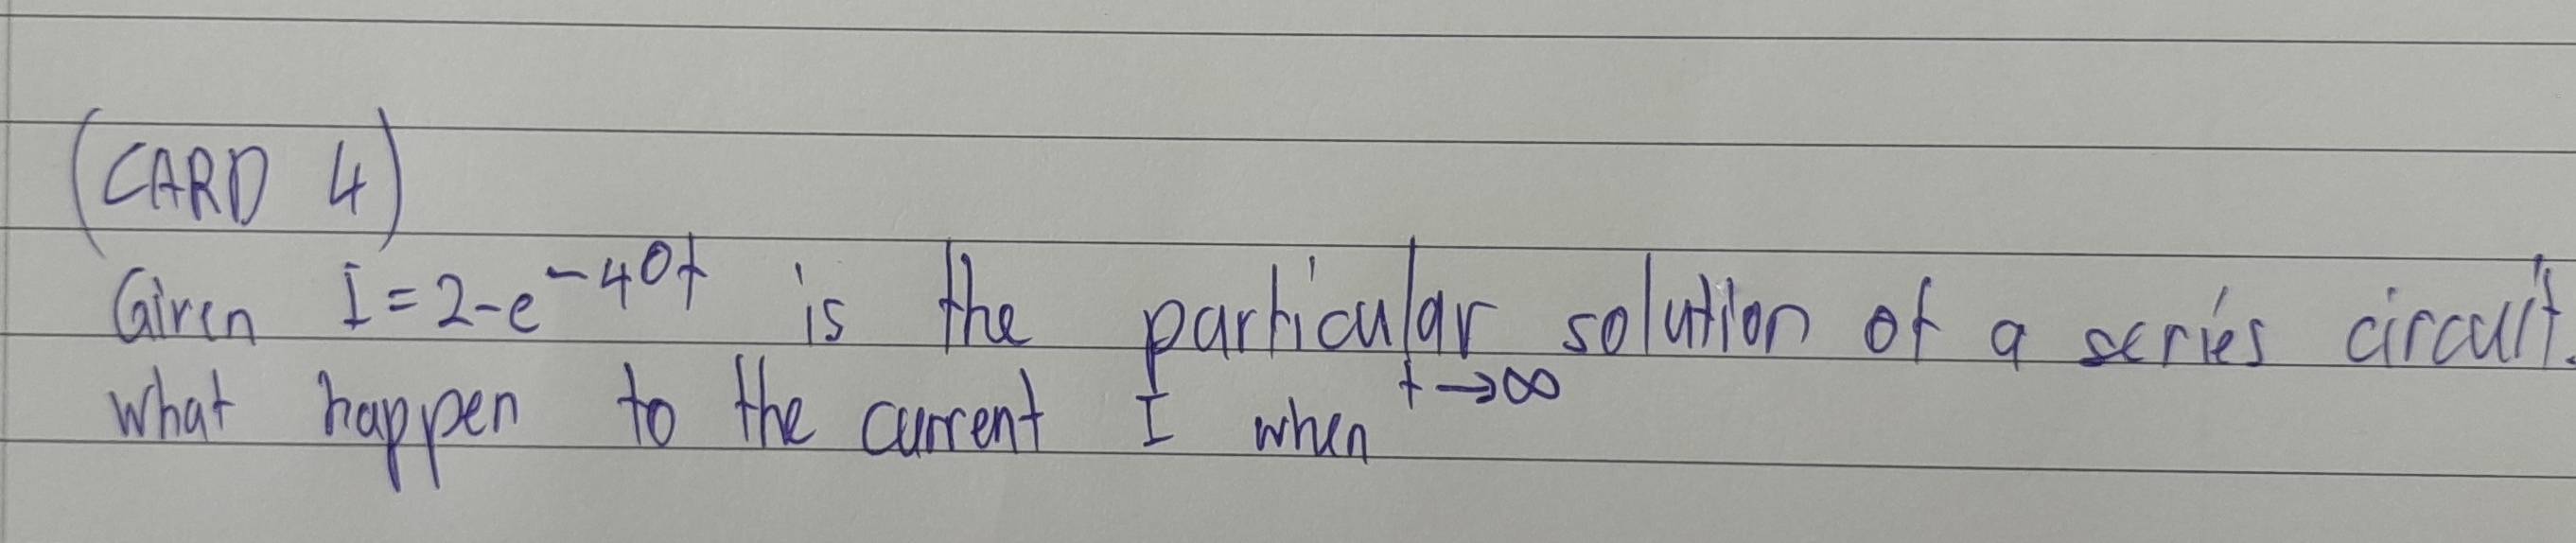 (CARD 4)
Given I = 2 - e^{-40t} is the particular solution of a series circuit.
What happen to the current I when t → ∞